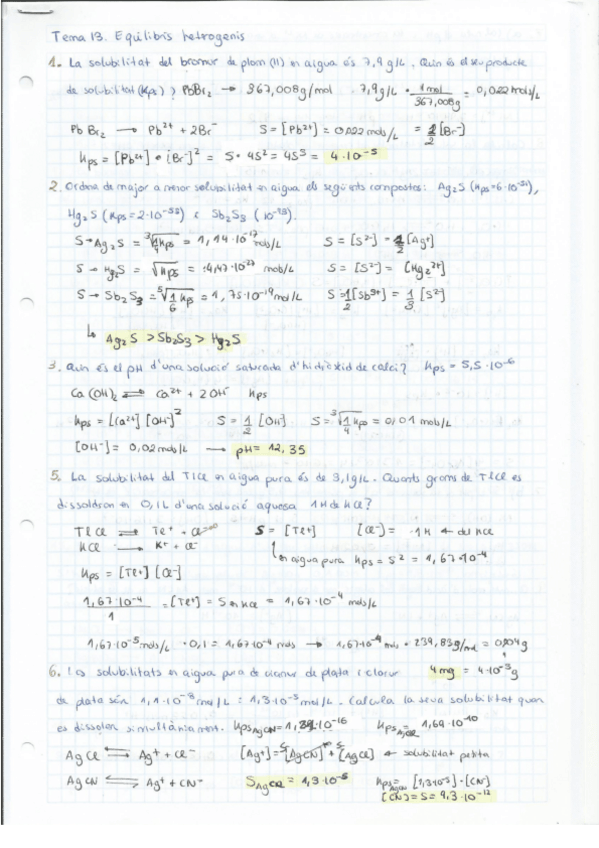 Tema 13. Equilibris hetrogenis
1. La solubilitat del bromur de plom (II) en aigua és 7,9 g/L. Quin és el seu producte
de solubilitat (Kps)? PbBr₂ → 367,008 g/mol 7,9 g/L · 1 mol / 367,008 g = 0,022 mols/L
PbBr₂ → Pb²⁺ + 2Br⁻ S = [Pb²⁺] = 0,022 mols/L = 1/2 [Br⁻]
Kps = [Pb²⁺] · [Br⁻]² = S · 4S² = 4S³ = 4·10⁻⁵
2. Ordena de major a menor solubilitat en aigua els següents compostos: Ag₂S (Kps = 6·10⁻⁵¹),
Hg₂S (Kps = 2·10⁻⁵³) i Sb₂S₃ (10⁻⁹³).
S → Ag₂S = ∛(1/4 Kps) = 1,14·10⁻¹⁷ mols/L S = [S²⁻] = 1/2 [Ag⁺]
S → Hg₂S = √Kps = 4,47·10⁻²⁷ mols/L S = [S²⁻] = [Hg₂²⁺]
S → Sb₂S₃ = ⁵√(1/6 Kps) = 1,75·10⁻¹⁹ mol/L S = 1/2 [Sb³⁺] = 1/3 [S²⁻]
↳ Ag₂S > Sb₂S₃ > Hg₂S
3. Quin és el pH d'una solució saturada d'hidròxid de calci? Kps = 5,5·10⁻⁶
Ca(OH)₂ ⇌ Ca²⁺ + 2OH⁻ Kps
Kps = [Ca²⁺] [OH⁻]² S = 1/2 [OH⁻] S = ∛(1/4 Kps) = 0,01 mols/L
[OH⁻] = 0,02 mols/L → pH = 12,35
5. La solubilitat del TlCl en aigua pura és de 3,1 g/L. Quants grams de TlCl es
dissoldran en 0,1 L d'una solució aquosa 1 M de KCl?
TlCl ⇌ Tl⁺ + Cl⁻ S = [Tl⁺] [Cl⁻] = 1M ← del KCl
KCl → K⁺ + Cl⁻ en aigua pura Kps = S² = 1,67·10⁻⁴
Kps = [Tl⁺] [Cl⁻]
1,67·10⁻⁴ / 1 = [Tl⁺] = S en KCl = 1,67·10⁻⁴ mols/L
1,67·10⁻⁵ mols/L · 0,1 = 1,67·10⁻⁴ mols → 1,67·10⁻⁴ mols · 239,83 g/mol = 0,004 g
6. Les solubilitats en aigua pura de cianur de plata i clorur 4 mg = 4·10⁻³ g
de plata són 1,1·10⁻⁸ mol/L i 1,3·10⁻⁵ mol/L. Calcula la seva solubilitat quan
es dissolen simultàniament. Kps AgCN = 10⁻¹⁶ Kps AgCl = 1,69·10⁻¹⁰
AgCl ⇌ Ag⁺ + Cl⁻ [Ag⁺] = S[AgCN] + S[AgCl] ← solubilitat petita
AgCN ⇌ Ag⁺ + CN⁻ S AgCl = 1,3·10⁻⁵ Kps AgCN = [1,3·10⁻⁵] · [CN⁻]
[CN⁻] = S = 9,3·10⁻¹²